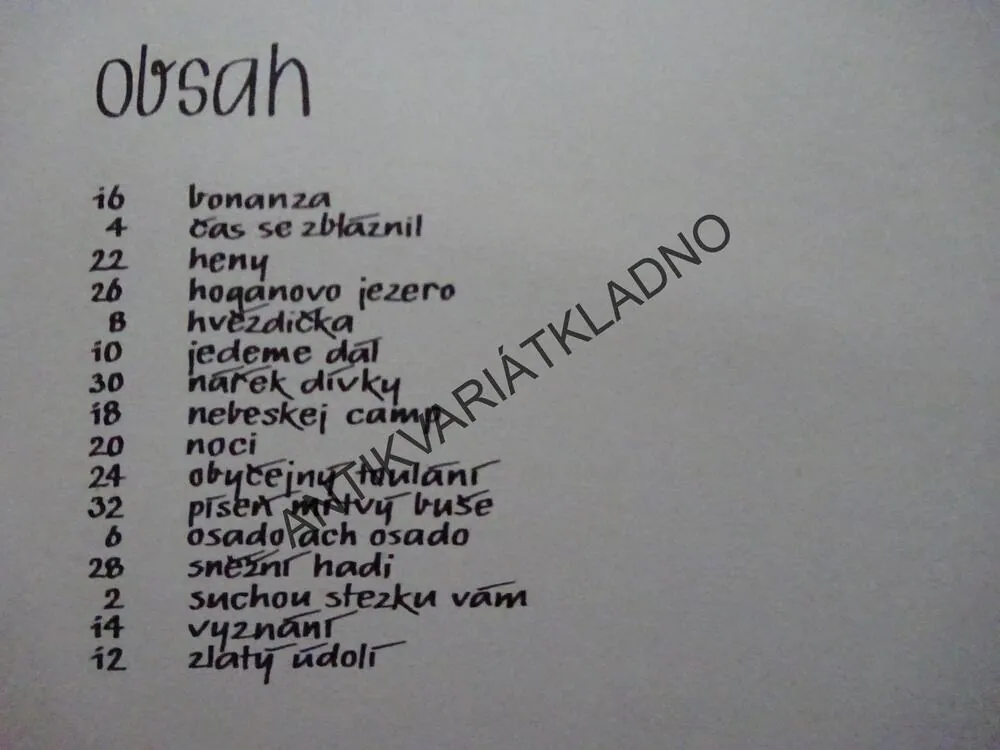 obsah
16 bonanza
4 čas se zbláznil
22 heny
26 hoganovo jezero
8 hvězdička
10 jedeme dál
30 nářek dívky
18 nebeskej camp
20 noci
24 obyčejný toulání
32 píseň mrtvý buše
6 osado ach osado
28 sněžní hadi
2 suchou stezku vám
14 vyznání
12 zlatý údolí
ANTIKVARIÁTKLADNO